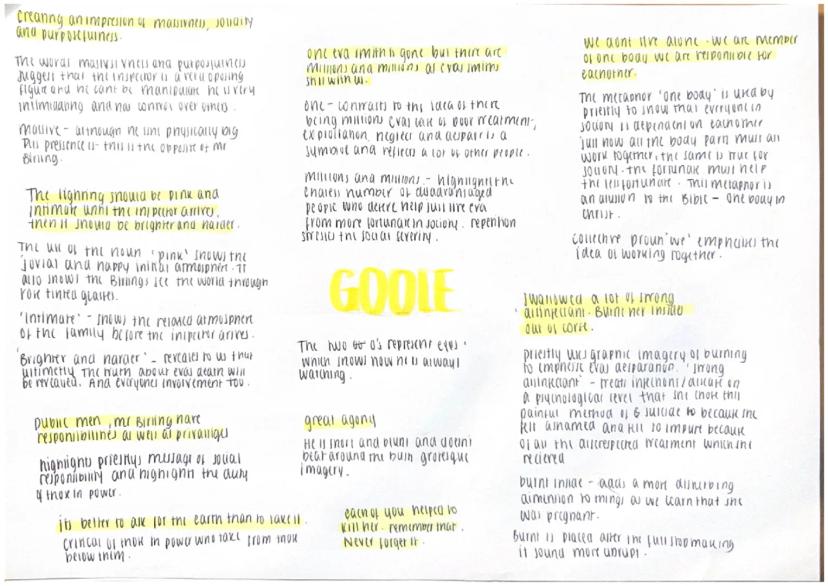 creating an impression of massiveness, solidity
and purposefulness.
The words massiveness and purposfulness
suggest that the inspector is a very
figure and he cant be manipulate he is very
intimidating and has control over others.
massive - although he isnt physically big
his presence is - this is the opposite of mr
Birling.
The lighting should be pink and
intimate until the inspector arrives,
then it should be brighter and harder.
The use of the noun 'pink' shows the
jovial and happy initial atmosphere. It
also shows the Birlings see the world through
rose tinted glasses.
'Intimate' - shows the relaxed atmosphere
of the family before the inspector arrives.
'Brighter and harder' - reveales to us that
ultimetly the truth about evas death will
be revealed. And everyones involvement too.
public men, mr Birling have
responsibilities as well as privaliges
highlights priestlys message of social
responsibility and highlights the duty
of those in power.
its better to ask for the earth than to take it.
critical of those in power who take from those
below them.
one eva smith is gone but there are
millions and millions of evas smiths
still with us.
one - contrasts to the idea of there
being millions evas tale of poor treatment,
exploitation, neglect and despair is a
symbol and reflects a lot of other people.
millions and millions - highlights the
endless number of disadvantaged
people who deserve help just like eva
from more fortunate in society. repetition
stresses the social severity.
GOOLE
The two o's represent eyes
which shows how he is always
watching.
great agony
He is short and blunt and doesnt
beat around the bush grotesque
imagery.
each of you helped to
kill her. remember that.
Never forget it.
we dont live alone - we are member
of one body we are responsible for
eachother.
The metaphor 'one body' is used by
priestly to show that everyone in
society is dependent on eachother
just how all the body parts must all
work together, the same is true for
society. the fortunate must help
the less fortunate. This metaphor is
an allusion to the Bible - one body in
christ.
collective pronoun 'we' emphasises the
idea of working together.
swallowed a lot of strong
disinfectant. Burnt her inside
out of corse.
priestly uses graphic imagery of burning
to emphesise evas desparation. 'strong
disinfectant' - treats infections/disease on
a psychological level that she chose this
painful method of suicide to because she
felt ashamed and felt so impure because
of all the disrespected treatment which she
recieved
burnt inside - adds a more disturbing
dimension to things as we learn that she
was pregnant.
Burnt is placed after the full stop making
it sound more abrupt.